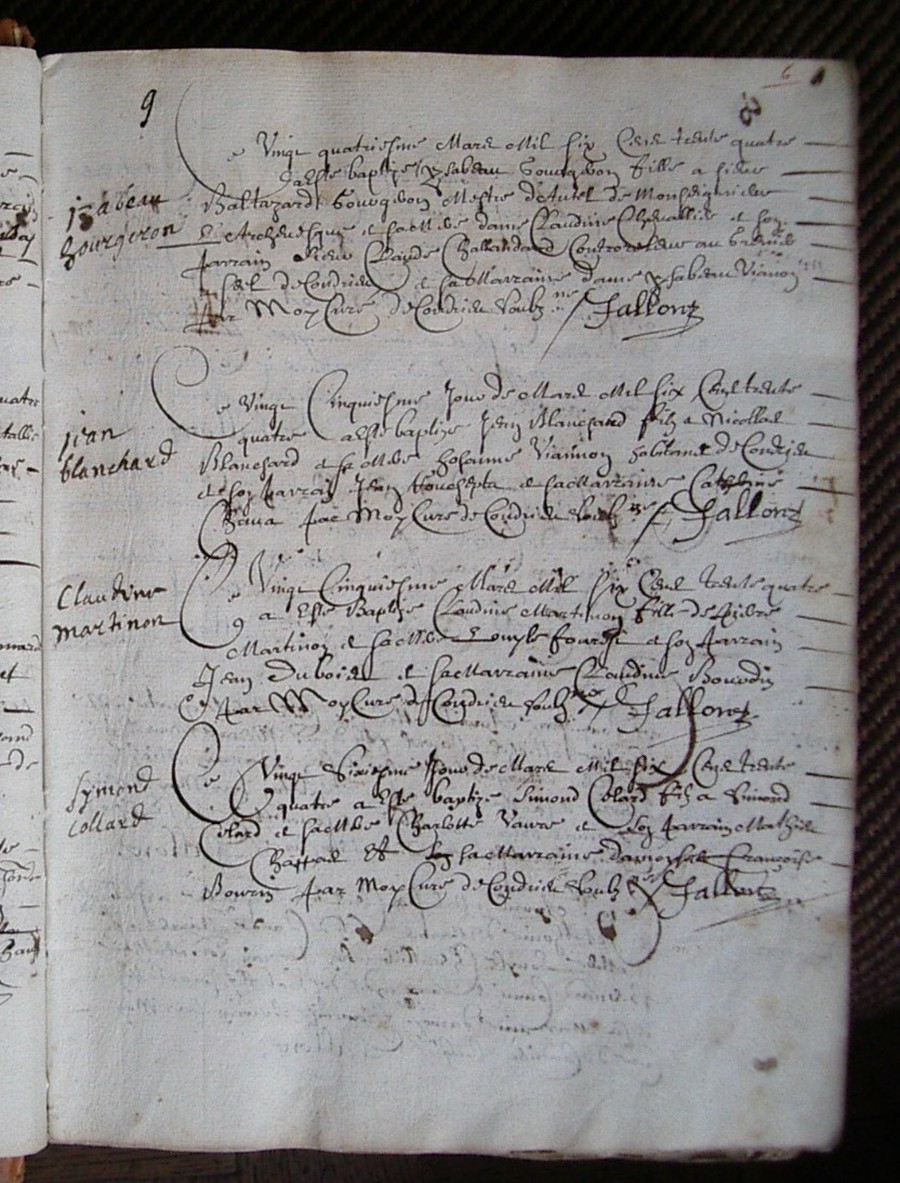 9
6
Isabeau
bourgeron
Ce Vingt quatriesme Mars Mil six Cent trente quatre
a esté baptizé Ysabeau bourgeron fille a sieur
Baltazard bourgeron Mestre d'autel de Monseigneur
L'Archevesque et sa Mere dame Claudine Chevallier et son
parrain sieur Claude Challandard Controroleur au Grenie
sel de Condrieu et sa Marraine dame Ysabeau Vianon
par Moy Curé de Condrieu soubz né Fallonz
jean
blanchard
Ce Vingt Cinquiesme Jour de Mars Mil six Cent trente
quatre a esté baptizé Jean Blanchard filz a Nicollas
Blanchard et sa Mere Vianon habitant de Condrieu
et son parrain Jean et sa Marraine Catherine
Chava par Moy Curé de Condrieu soubz né Fallonz
Claudine
martinon
Ce Vingt Cinquiesme Mars Mil six Cent trente quatre
a esté Baptizé Claudine Martinon fille de pierre
Martinon et sa Mere et son parrain
Jean Duboies et sa Marraine Claudine Bourdin
par Moy Curé de Condrieu soubz né Fallonz
symond
Collard
Ce Vingt Sixiesme Jour de Mars Mil six Cent trente
quatre a esté baptizé Simond Colard filz a Simond
Colard et sa Mere Charlotte Vaure et son parrain Mathieu
Chappas et sa Marraine damoyselle Françoise
Bourin par Moy Curé de Condrieu soubz né Fallonz